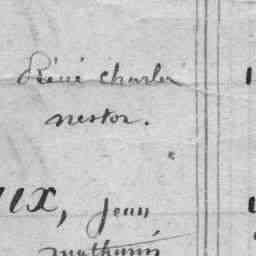 Réné Charles
nestor.
"
UX, Jean
mathurin